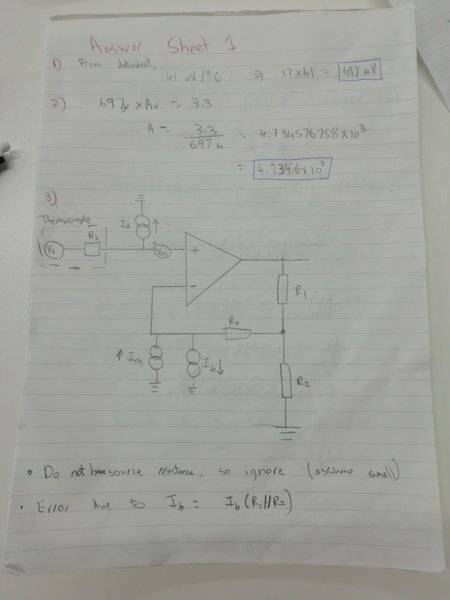 Answer Sheet 1
1) From datasheet,
41 uV/°C ⇒ 17 x 41 = 697 μV
2) 697μ x Av = 3.3
A = 3.3 / 697 μ = 4.734576758 x 10³
= 4.7346 x 10³
3)
Thermocouple
Ib ↑
Rs
Vs
+
-
R1
↑ Ios
Ib ↓
R2
• Do not have source resistance, so ignore (assume small)
• Error due to Ib = Ib (R1//R2)